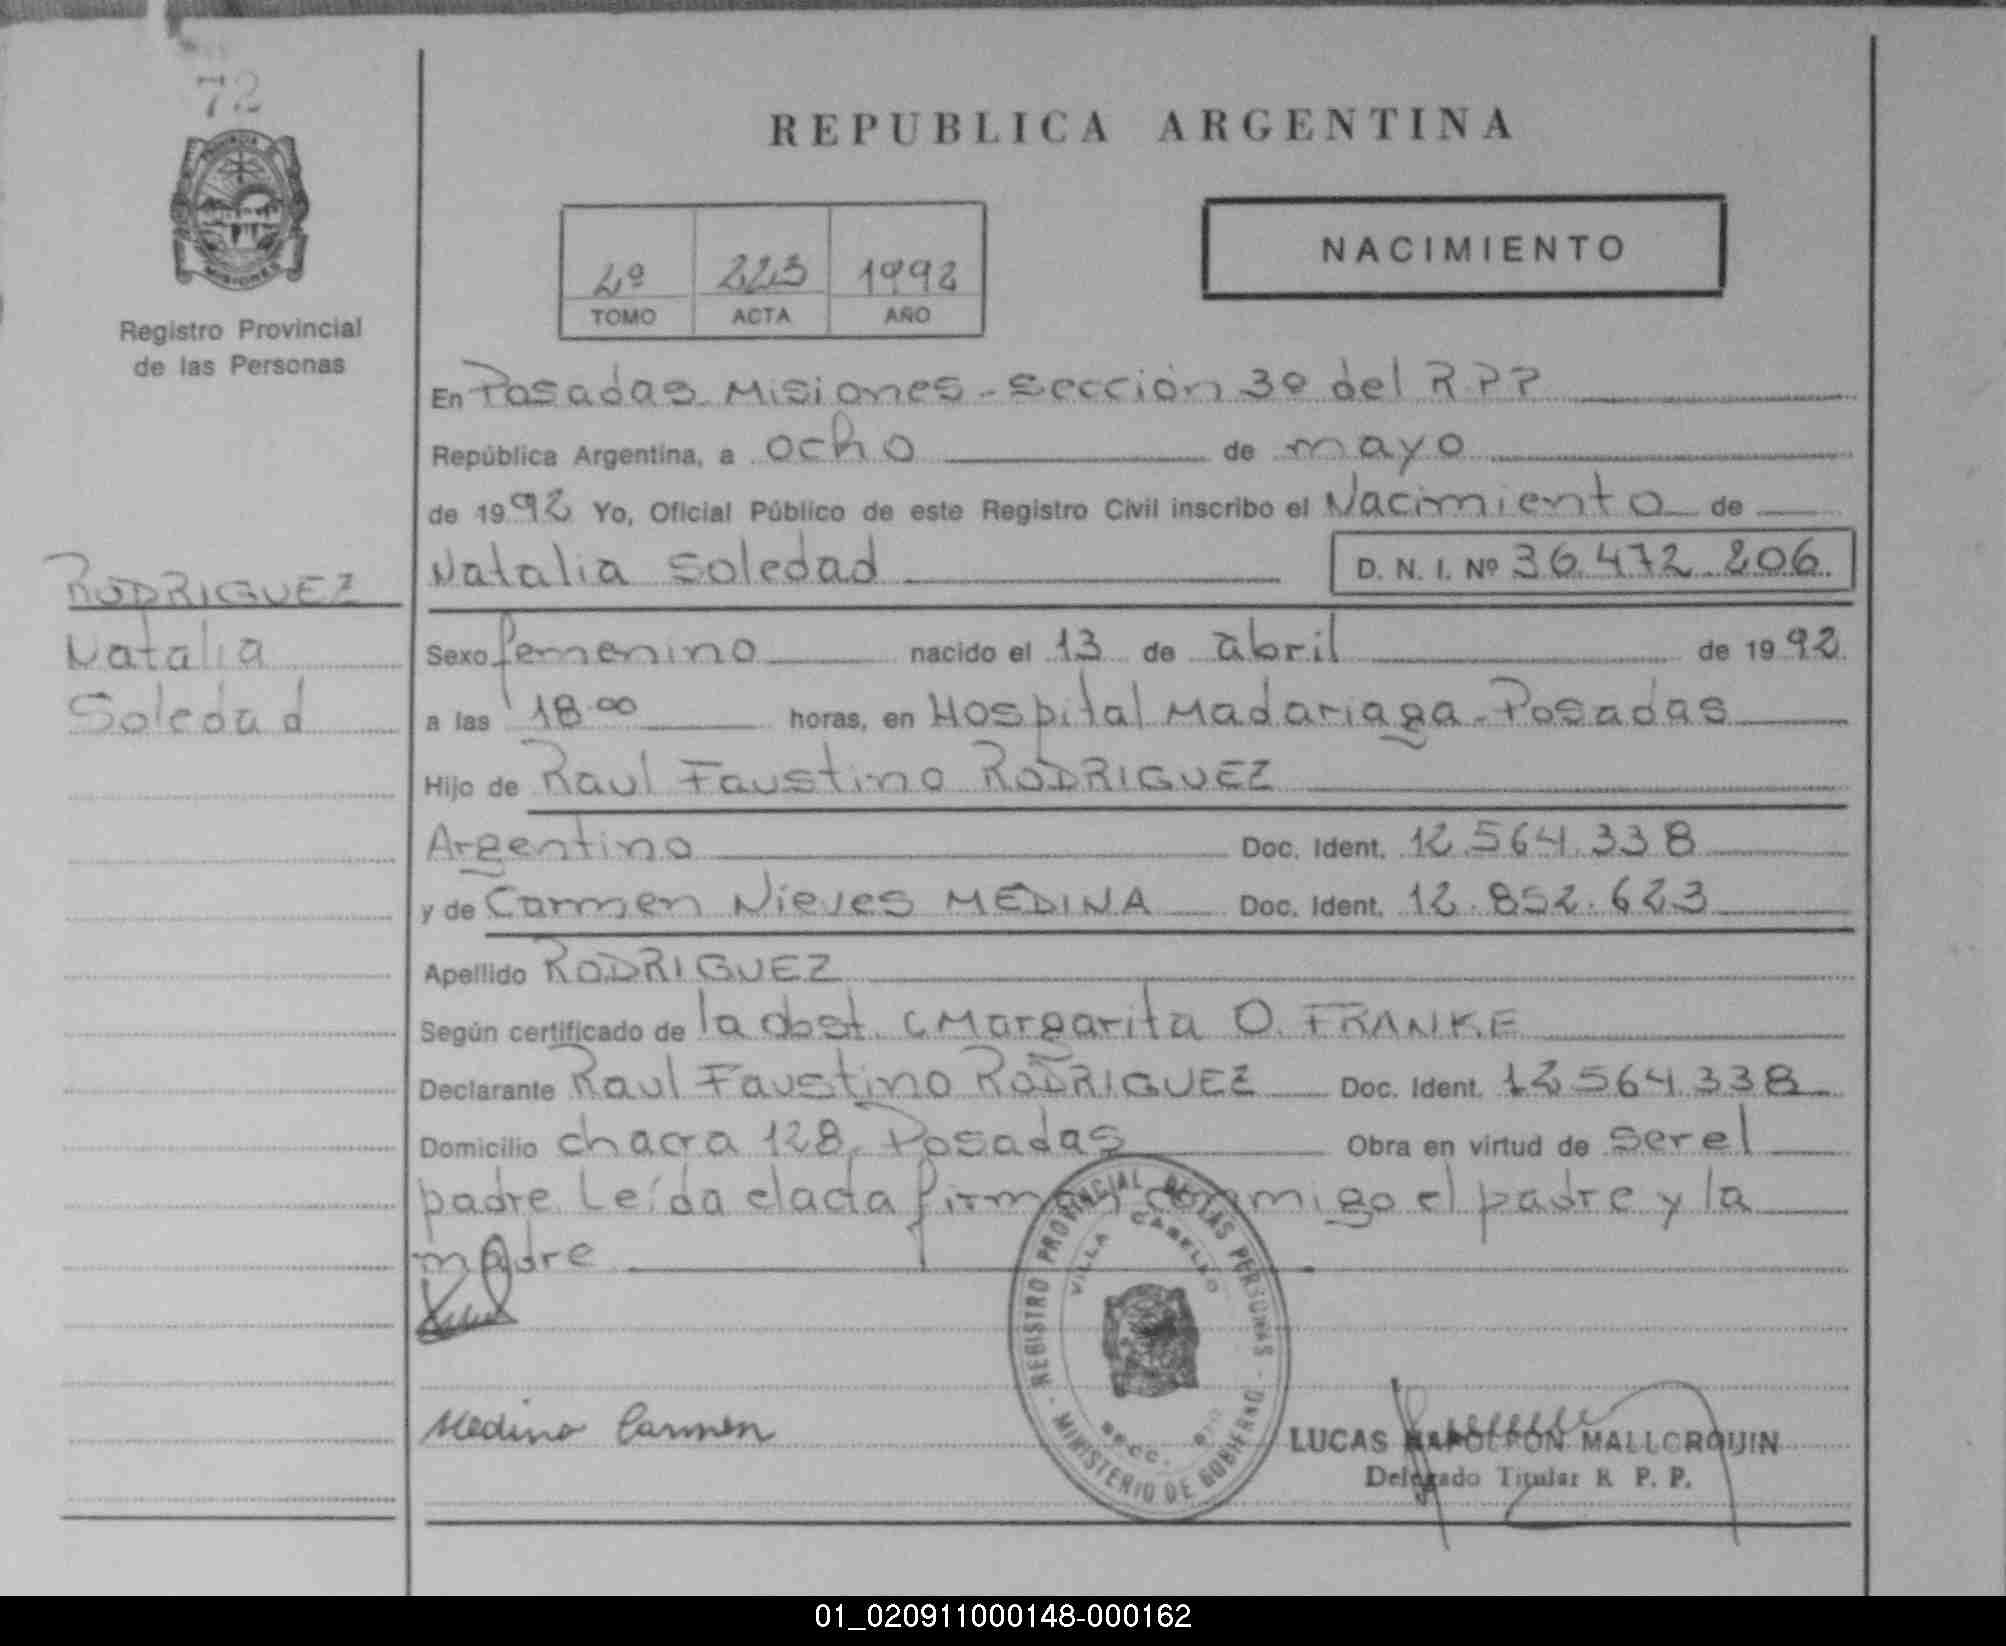 72
PROVINCIA
MISIONES
Registro Provincial
de las Personas
RODRIGUEZ
Natalia
Soledad
REPUBLICA ARGENTINA
2º 223 1992
TOMO ACTA AÑO
NACIMIENTO
En Posadas Misiones - Sección 3º del R.P.P
República Argentina, a ocho de mayo
de 1992 Yo, Oficial Público de este Registro Civil inscribo el Nacimiento de
Natalia Soledad D. N. I. Nº 36.472.206
Sexo femenino nacido el 13 de abril de 1992
a las 18.00 horas, en Hospital Madariaga - Posadas
Hijo de Raul Faustino RODRIGUEZ
Argentino Doc. Ident. 12.564.338
y de Carmen Nieves MEDINA Doc. Ident. 12.852.623
Apellido RODRIGUEZ
Según certificado de la obst. Margarita O. FRANKE
Declarante Raul Faustino RODRIGUEZ Doc. Ident. 12564.338
Domicilio chacra 128, Posadas Obra en virtud de ser el
padre. Leída el acta firman conmigo el padre y la
madre
REGISTRO PROVINCIAL DE LAS PERSONAS - MINISTERIO DE GOBIERNO -
VILLA CABELLO
SECC.
Medina Carmen
LUCAS NAPOLEON MALLORQUIN
Delegado Titular R P. P.
01_020911000148-000162